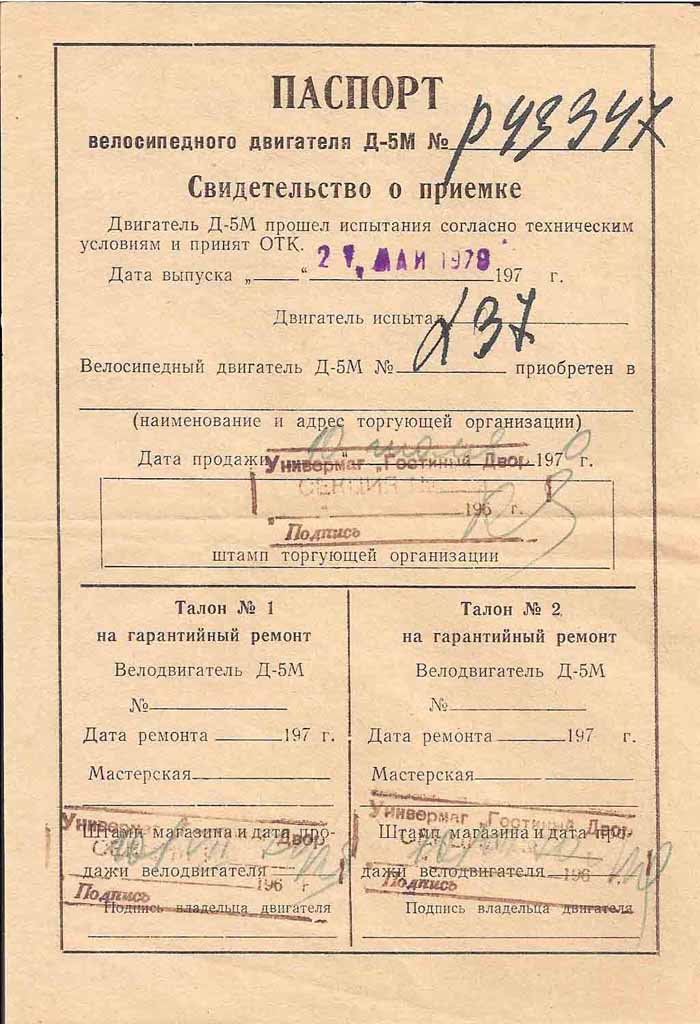 ПАСПОРТ
велосипедного двигателя Д-5М № р 43347
Свидетельство о приемке
Двигатель Д-5М прошел испытания согласно техническим
условиям и принят ОТК.
Дата выпуска „ “ 27. МАЙ 1978 197 г.
Двигатель испытал
Велосипедный двигатель Д-5М № 237 приобретен в
(наименование и адрес торгующей организации)
Дата продажи 197 г.
Универмаг „Гостиный Двор
СЕКЦИЯ №
" 196 г.
Подпись
штамп торгующей организации
Талон № 1
на гарантийный ремонт
Велодвигатель Д-5М
№
Дата ремонта 197 г.
Мастерская
Универмаг Двор
Штамп магазина и дата про-
дажи велодвигателя
196 г
Подпись
Подпись владельца двигателя
Талон № 2
на гарантийный ремонт
Велодвигатель Д-5М
№
Дата ремонта 197 г.
Мастерская
Универмаг „Гостиный Двор
Штамп магазина и дата про-
дажи велодвигателя
196
Подпись
Подпись владельца двигателя